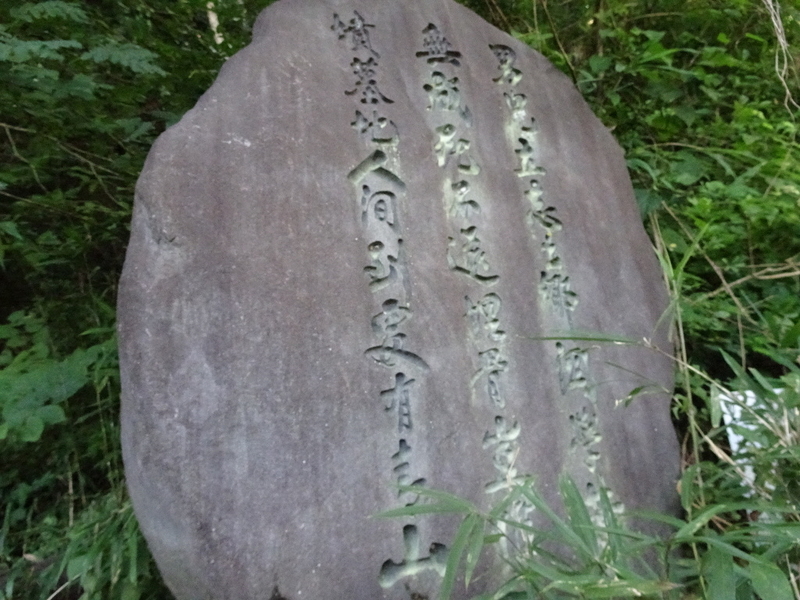 男児立志出郷関学
無成死不還埋骨豈
墳墓地人間到處有青山